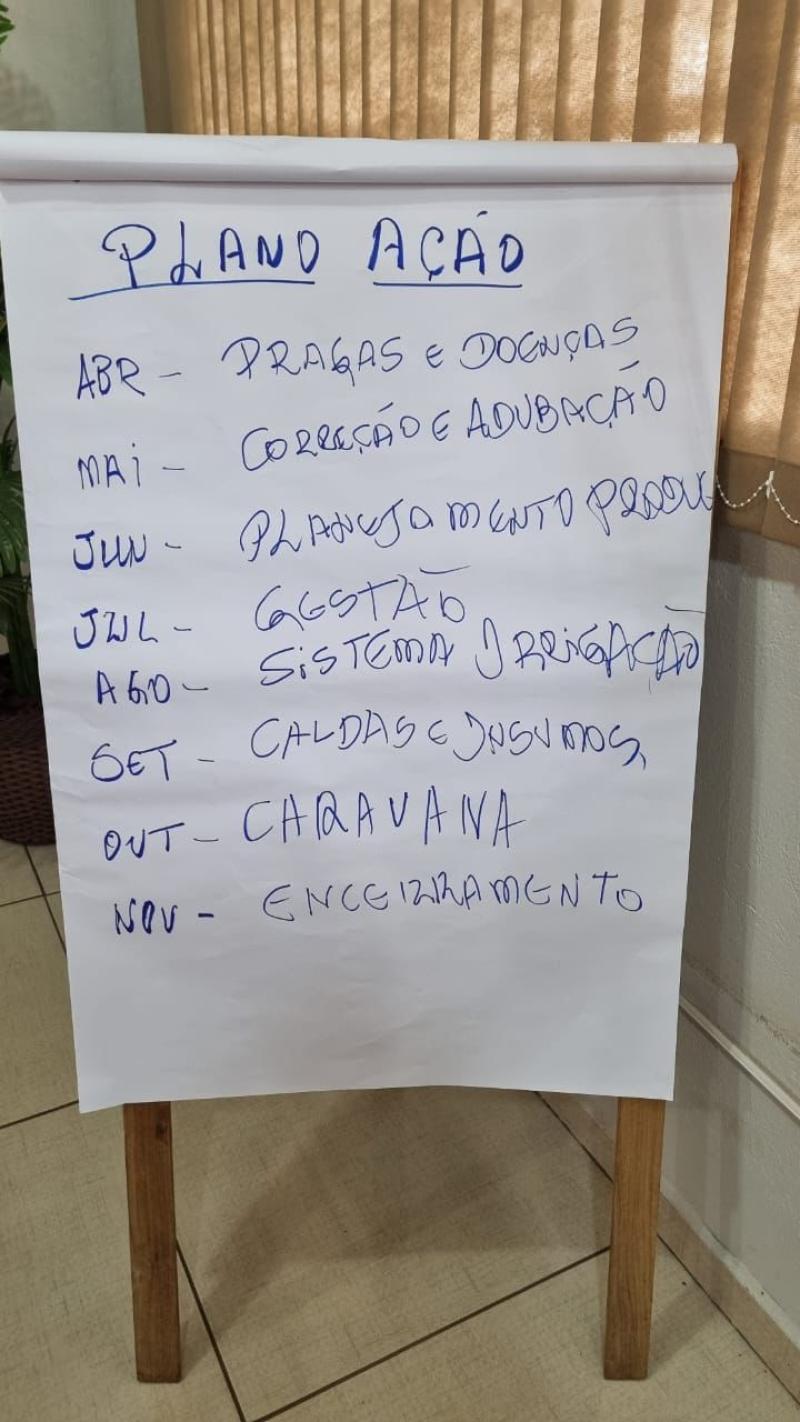 PLANO AÇÃO
ABR - PRAGAS E DOENÇAS
MAI - CORREÇÃO E ADUBAÇÃO
JUN - PLANEJAMENTO PRODU
JUL - GESTÃO
AGO - SISTEMA IRRIGAÇÃO
SET - CALDAS E INSUMOS,
OUT - CARAVANA
NOV - ENCERRAMENTO